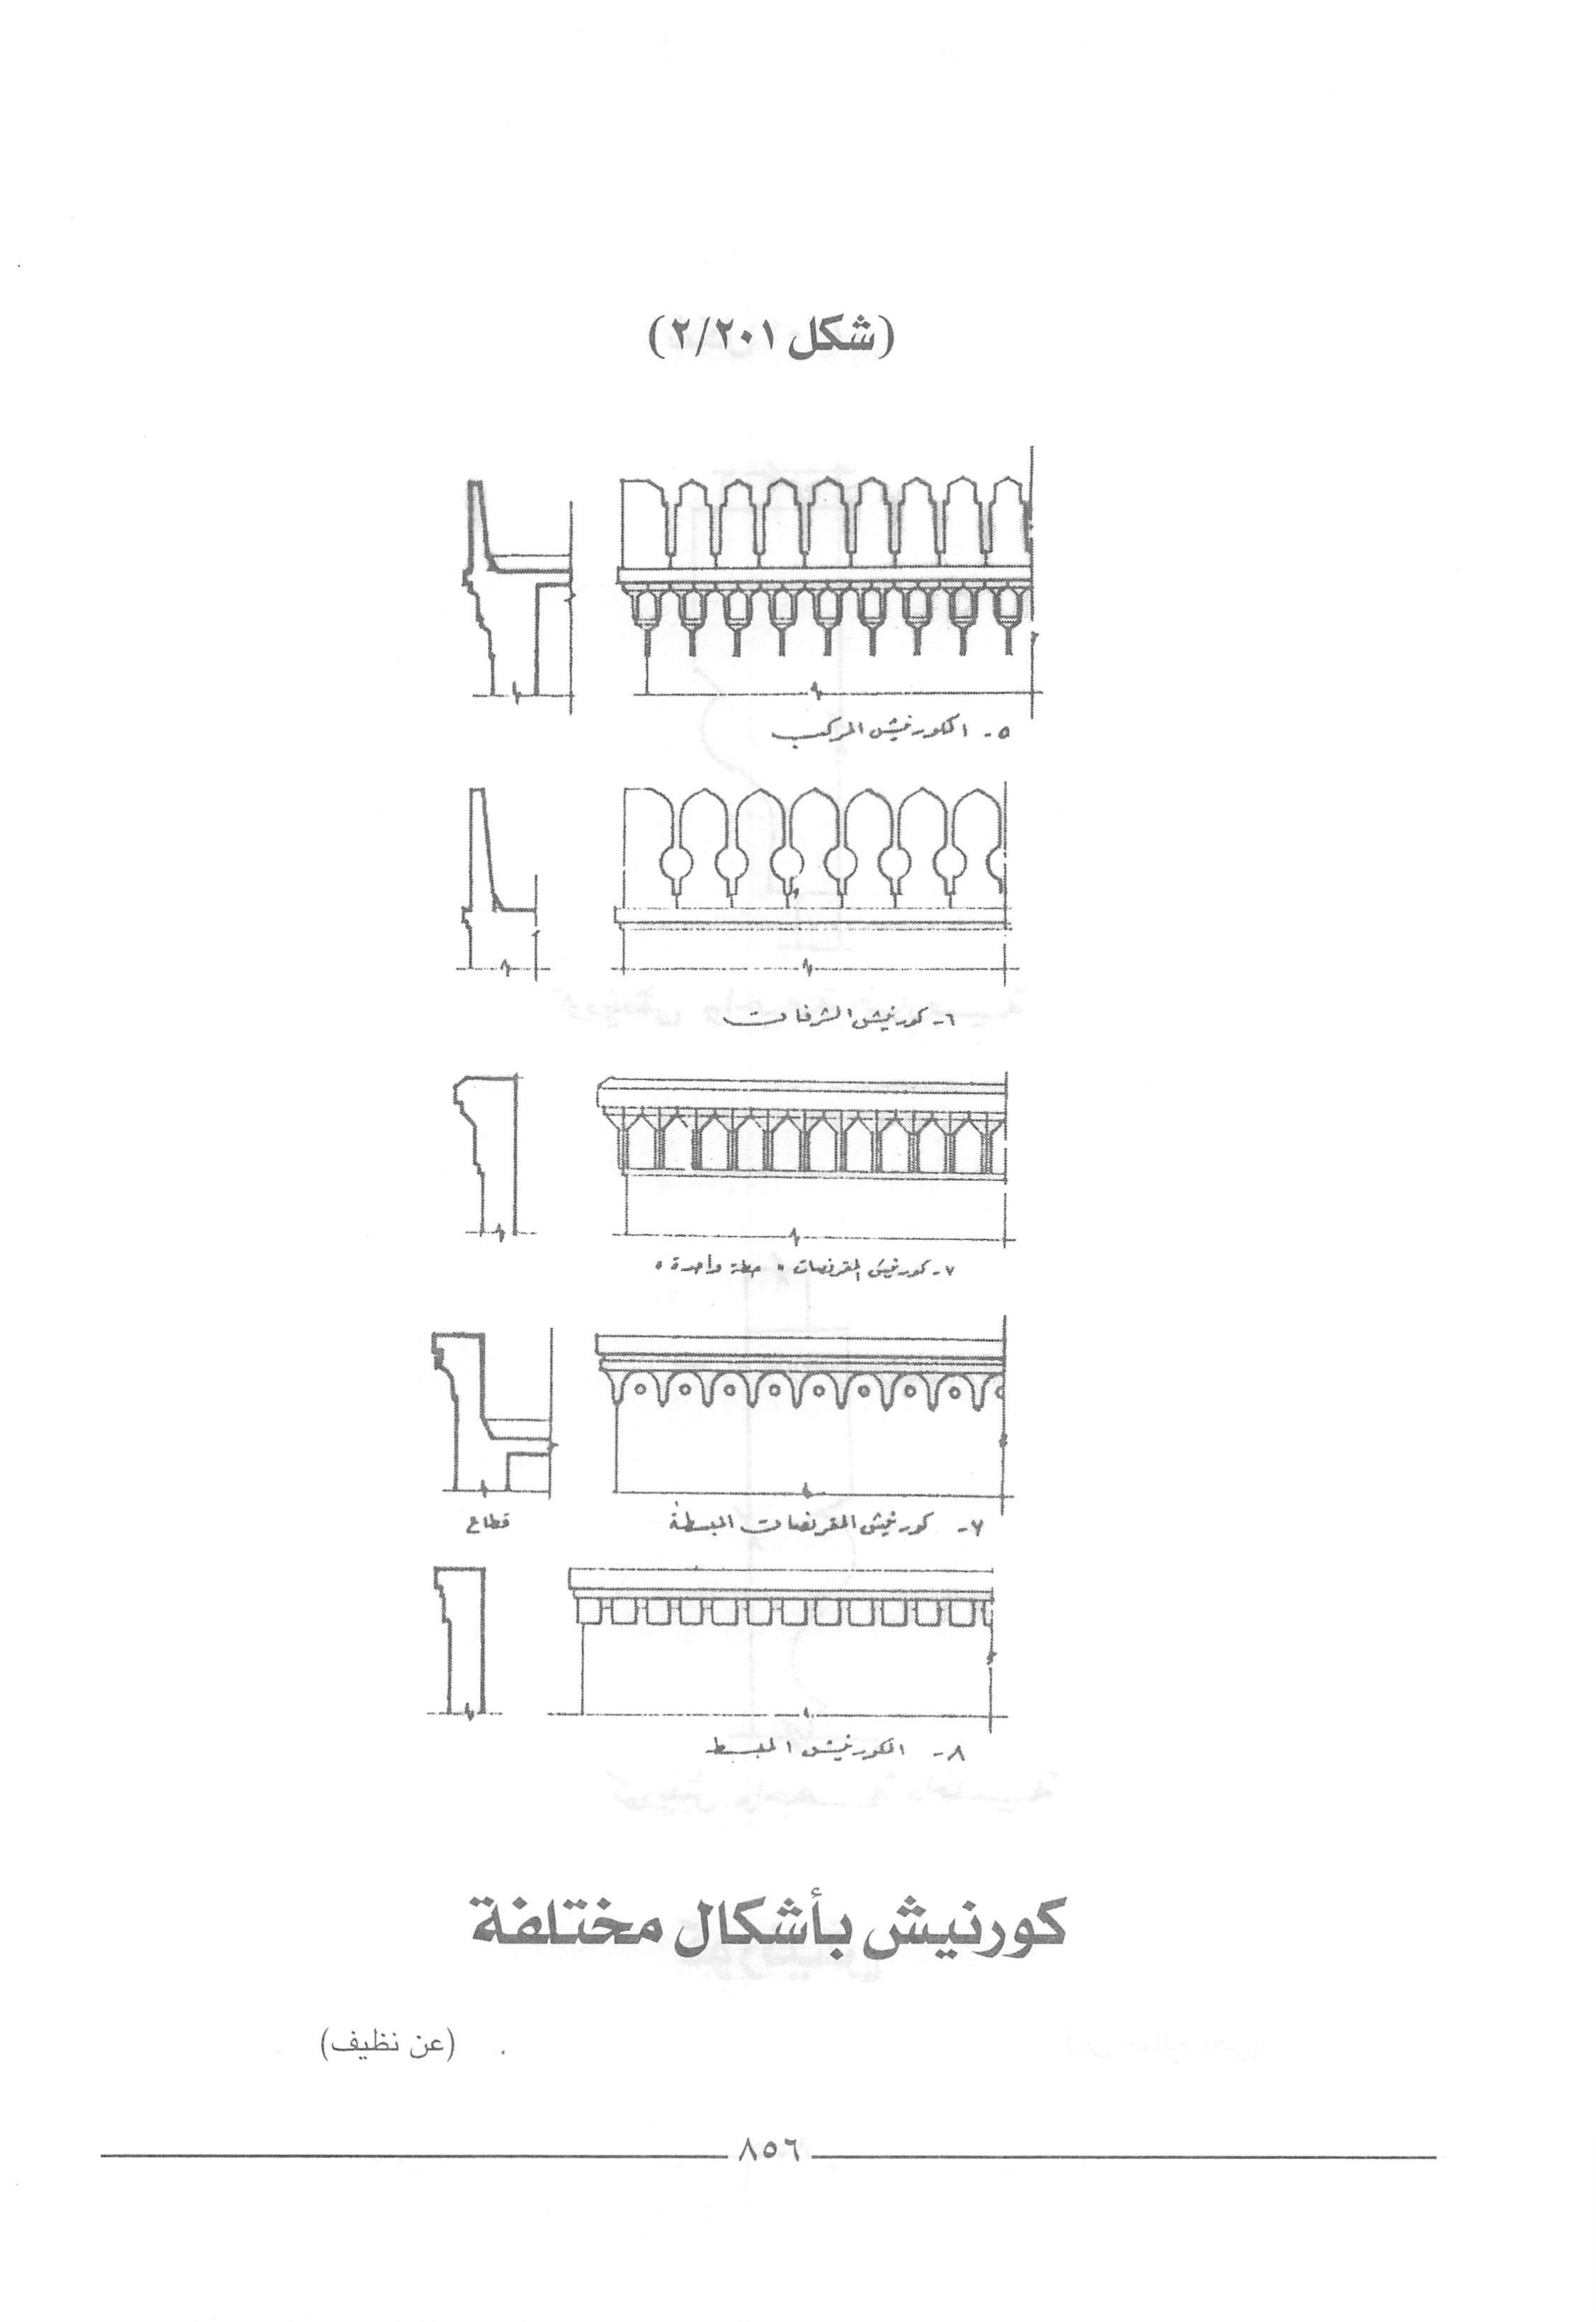 (شكل ٢/٢٠١)
٥- الكورنيش المركب
٦- كورنيش الشرفات
٧- كورنيش المقرنصات " حطة واحدة "
٧- كورنيش المقرنصات المبسطة
قطاع
٨- الكورنيش المبسط
كورنيش بأشكال مختلفة
(عن نظيف)
٨٥٦